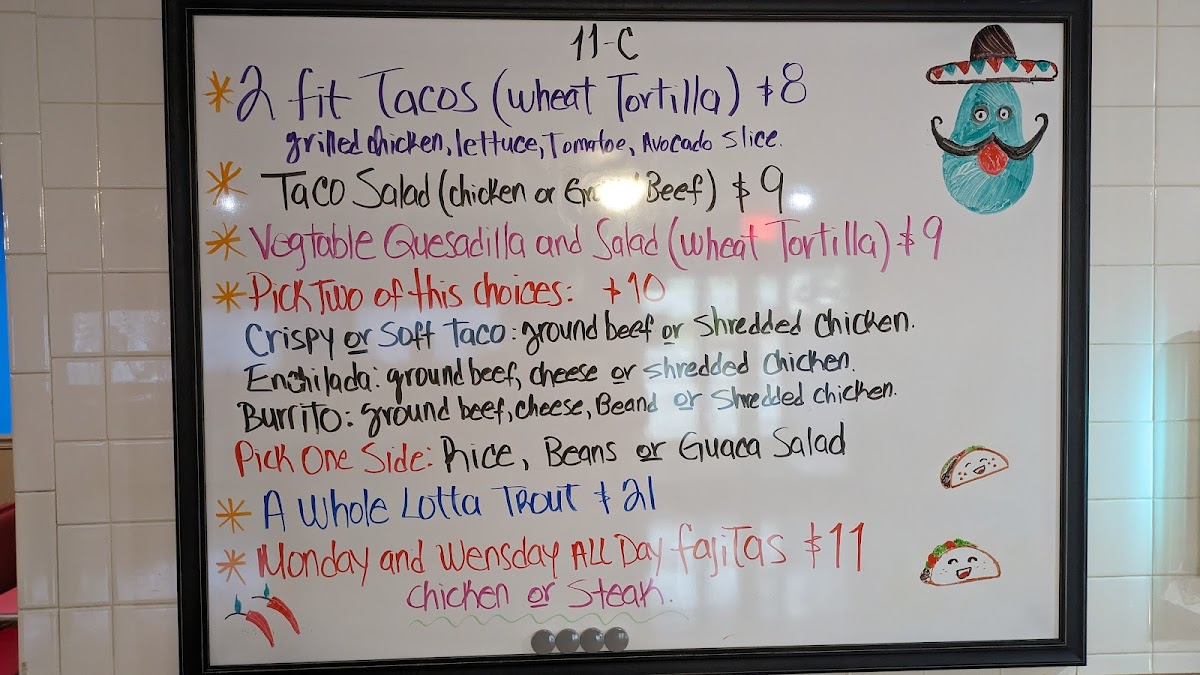 11-C
* 2 fit Tacos (wheat Tortilla) $8
grilled chicken, lettuce, Tomatoe, Avocado slice.
* Taco Salad (chicken or Beef) $9
* Vegtable Quesadilla and Salad (wheat Tortilla) $9
* Pick Two of this choices: $10
Crispy or Soft Taco: ground beef or Shredded Chicken.
Enchilada: ground beef, cheese or shredded Chicken.
Burrito: ground beef, cheese, Beand or Shredded chicken.
Pick One Side: Rice, Beans or Guaca Salad
* A Whole Lotta Trout $21
* Monday and Wensday ALL Day fajitas $11
chicken or Steak.